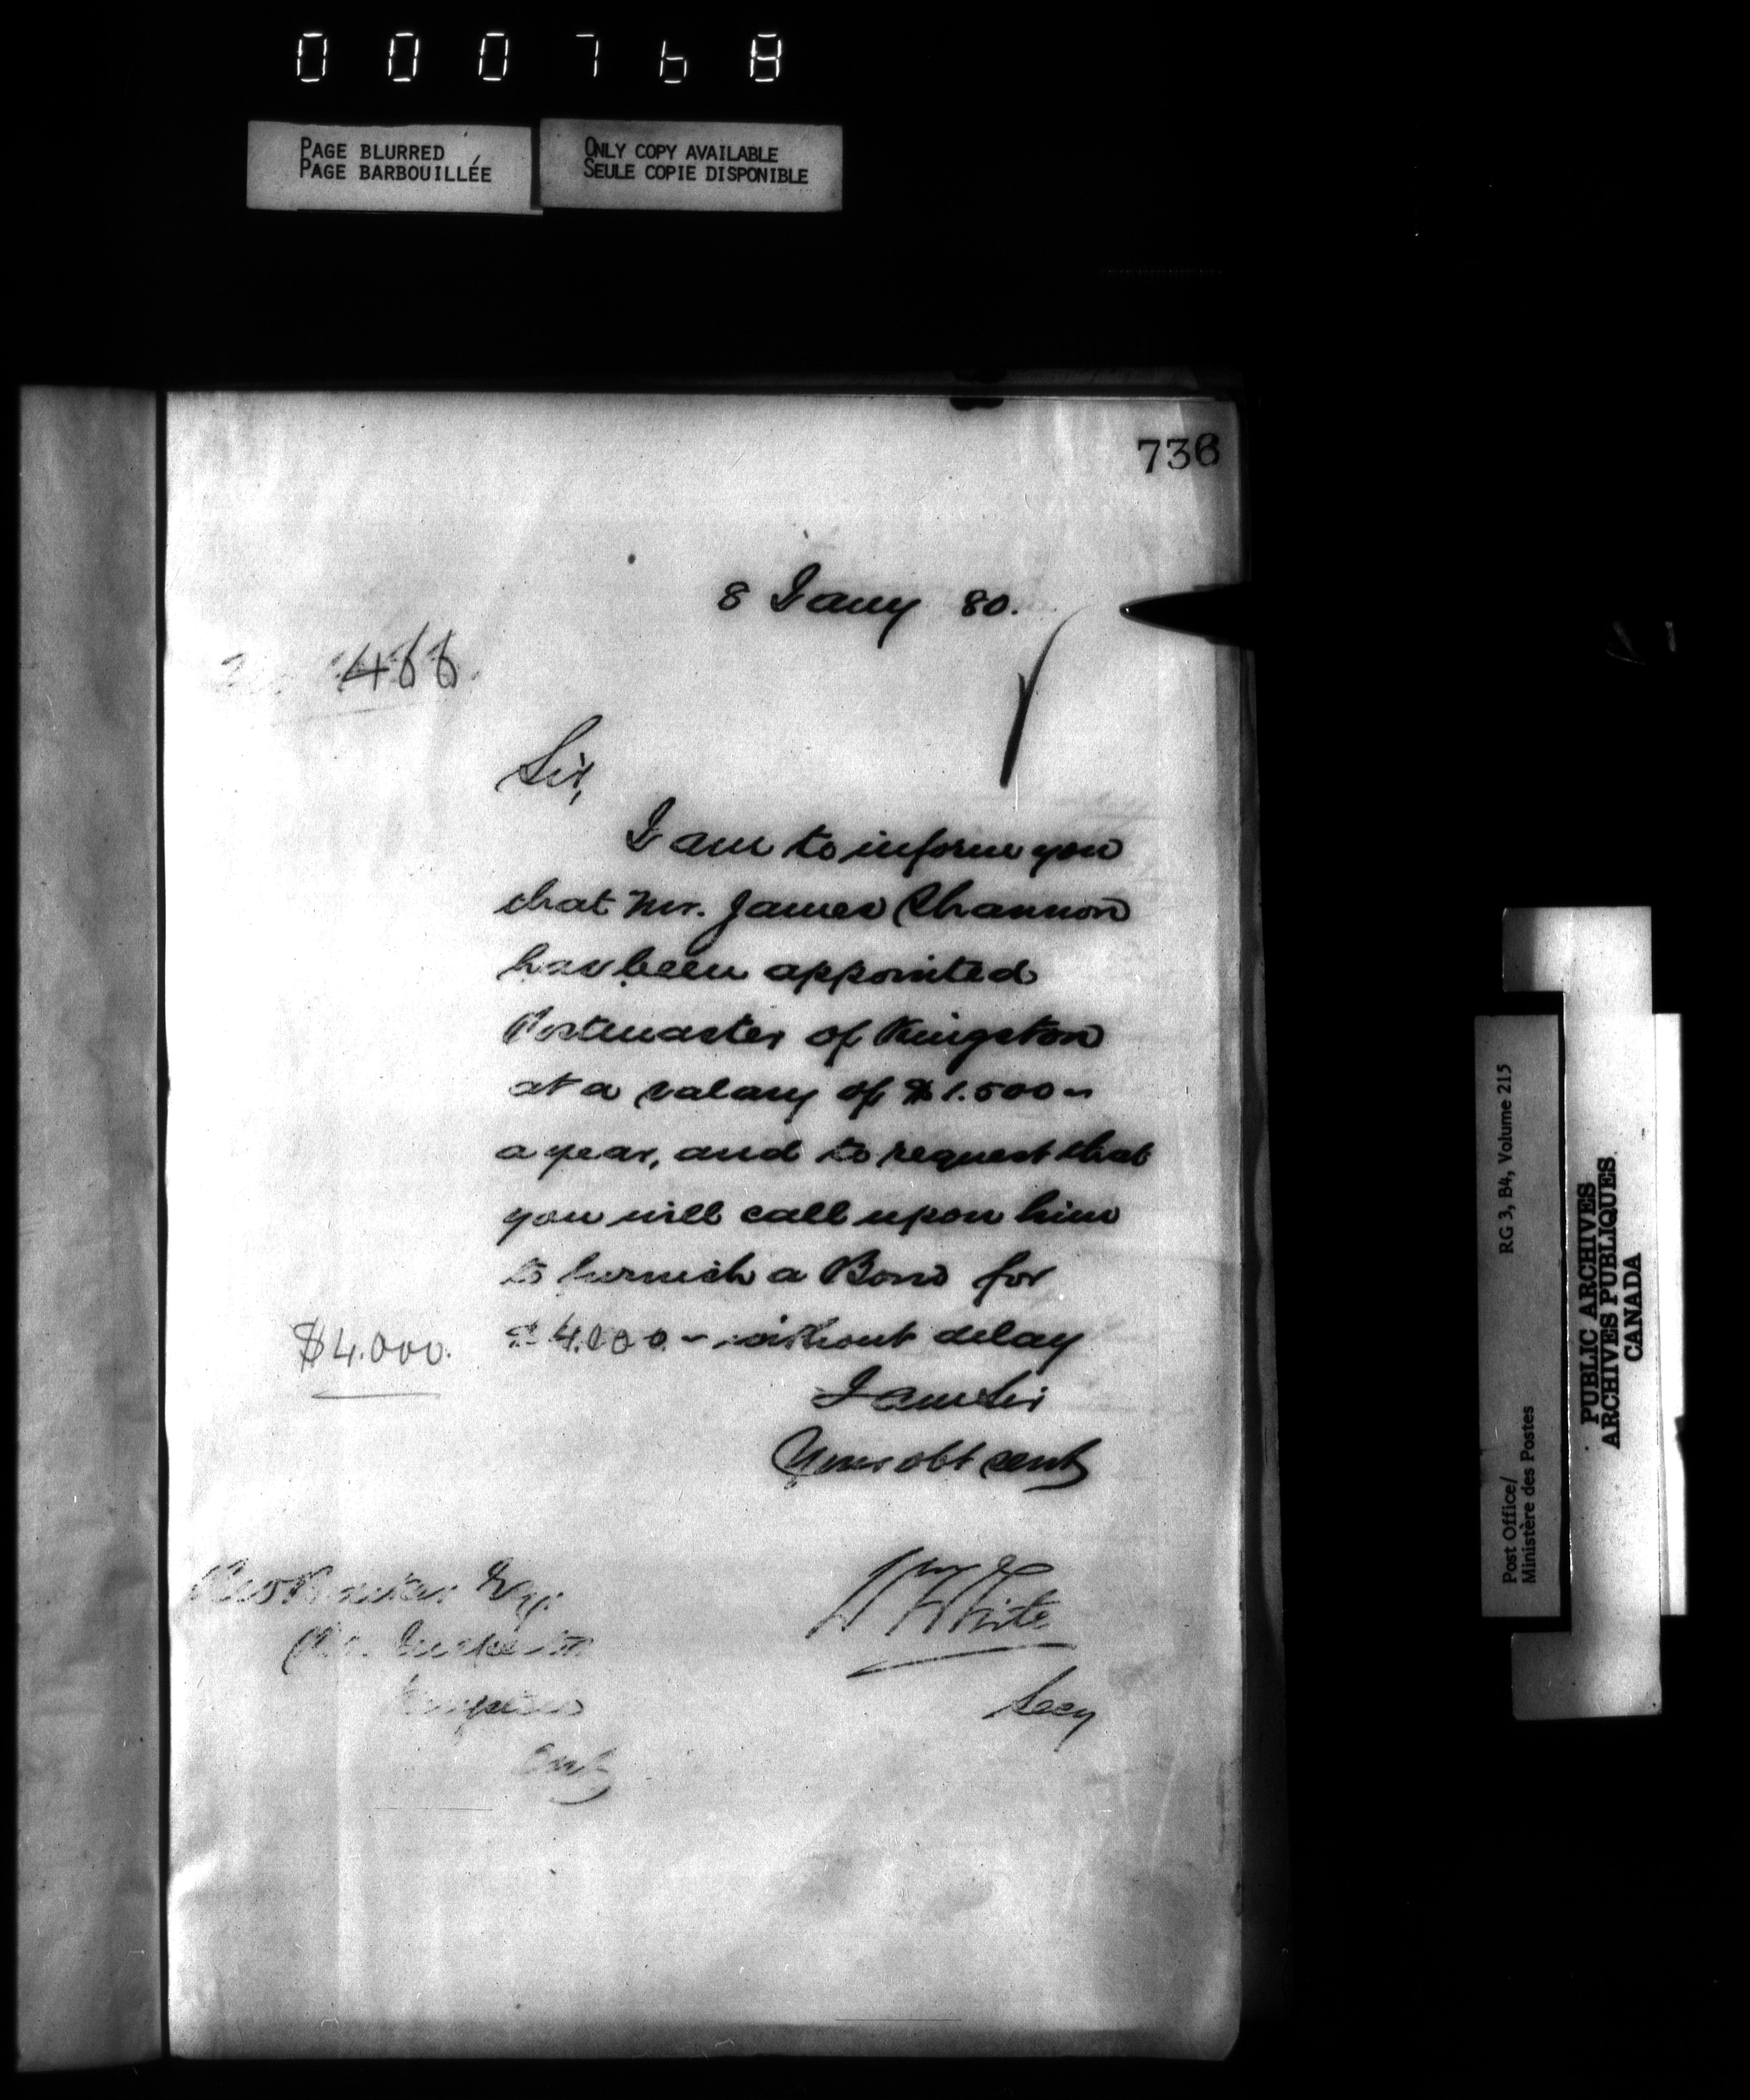 000768
PAGE BLURRED
PAGE BARBOUILLÉE
ONLY COPY AVAILABLE
SEULE COPIE DISPONIBLE
736
8 Jany 80.
466.
Sir,
I am to inform you
that Mr. James Shannon
has been appointed
Postmaster of Kingston
at a salary of $1.500 -
a year, and to request that
you will call upon him
to furnish a Bond for
$4.000 - without delay
$4.000.
I am Sir
Your obt servt
Esqr.
P.O. Inspector
Kingston
Ont
Wm White
Secy
RG 3, B4, Volume 215
Post Office/
Ministère des Postes
PUBLIC ARCHIVES
ARCHIVES PUBLIQUES
CANADA